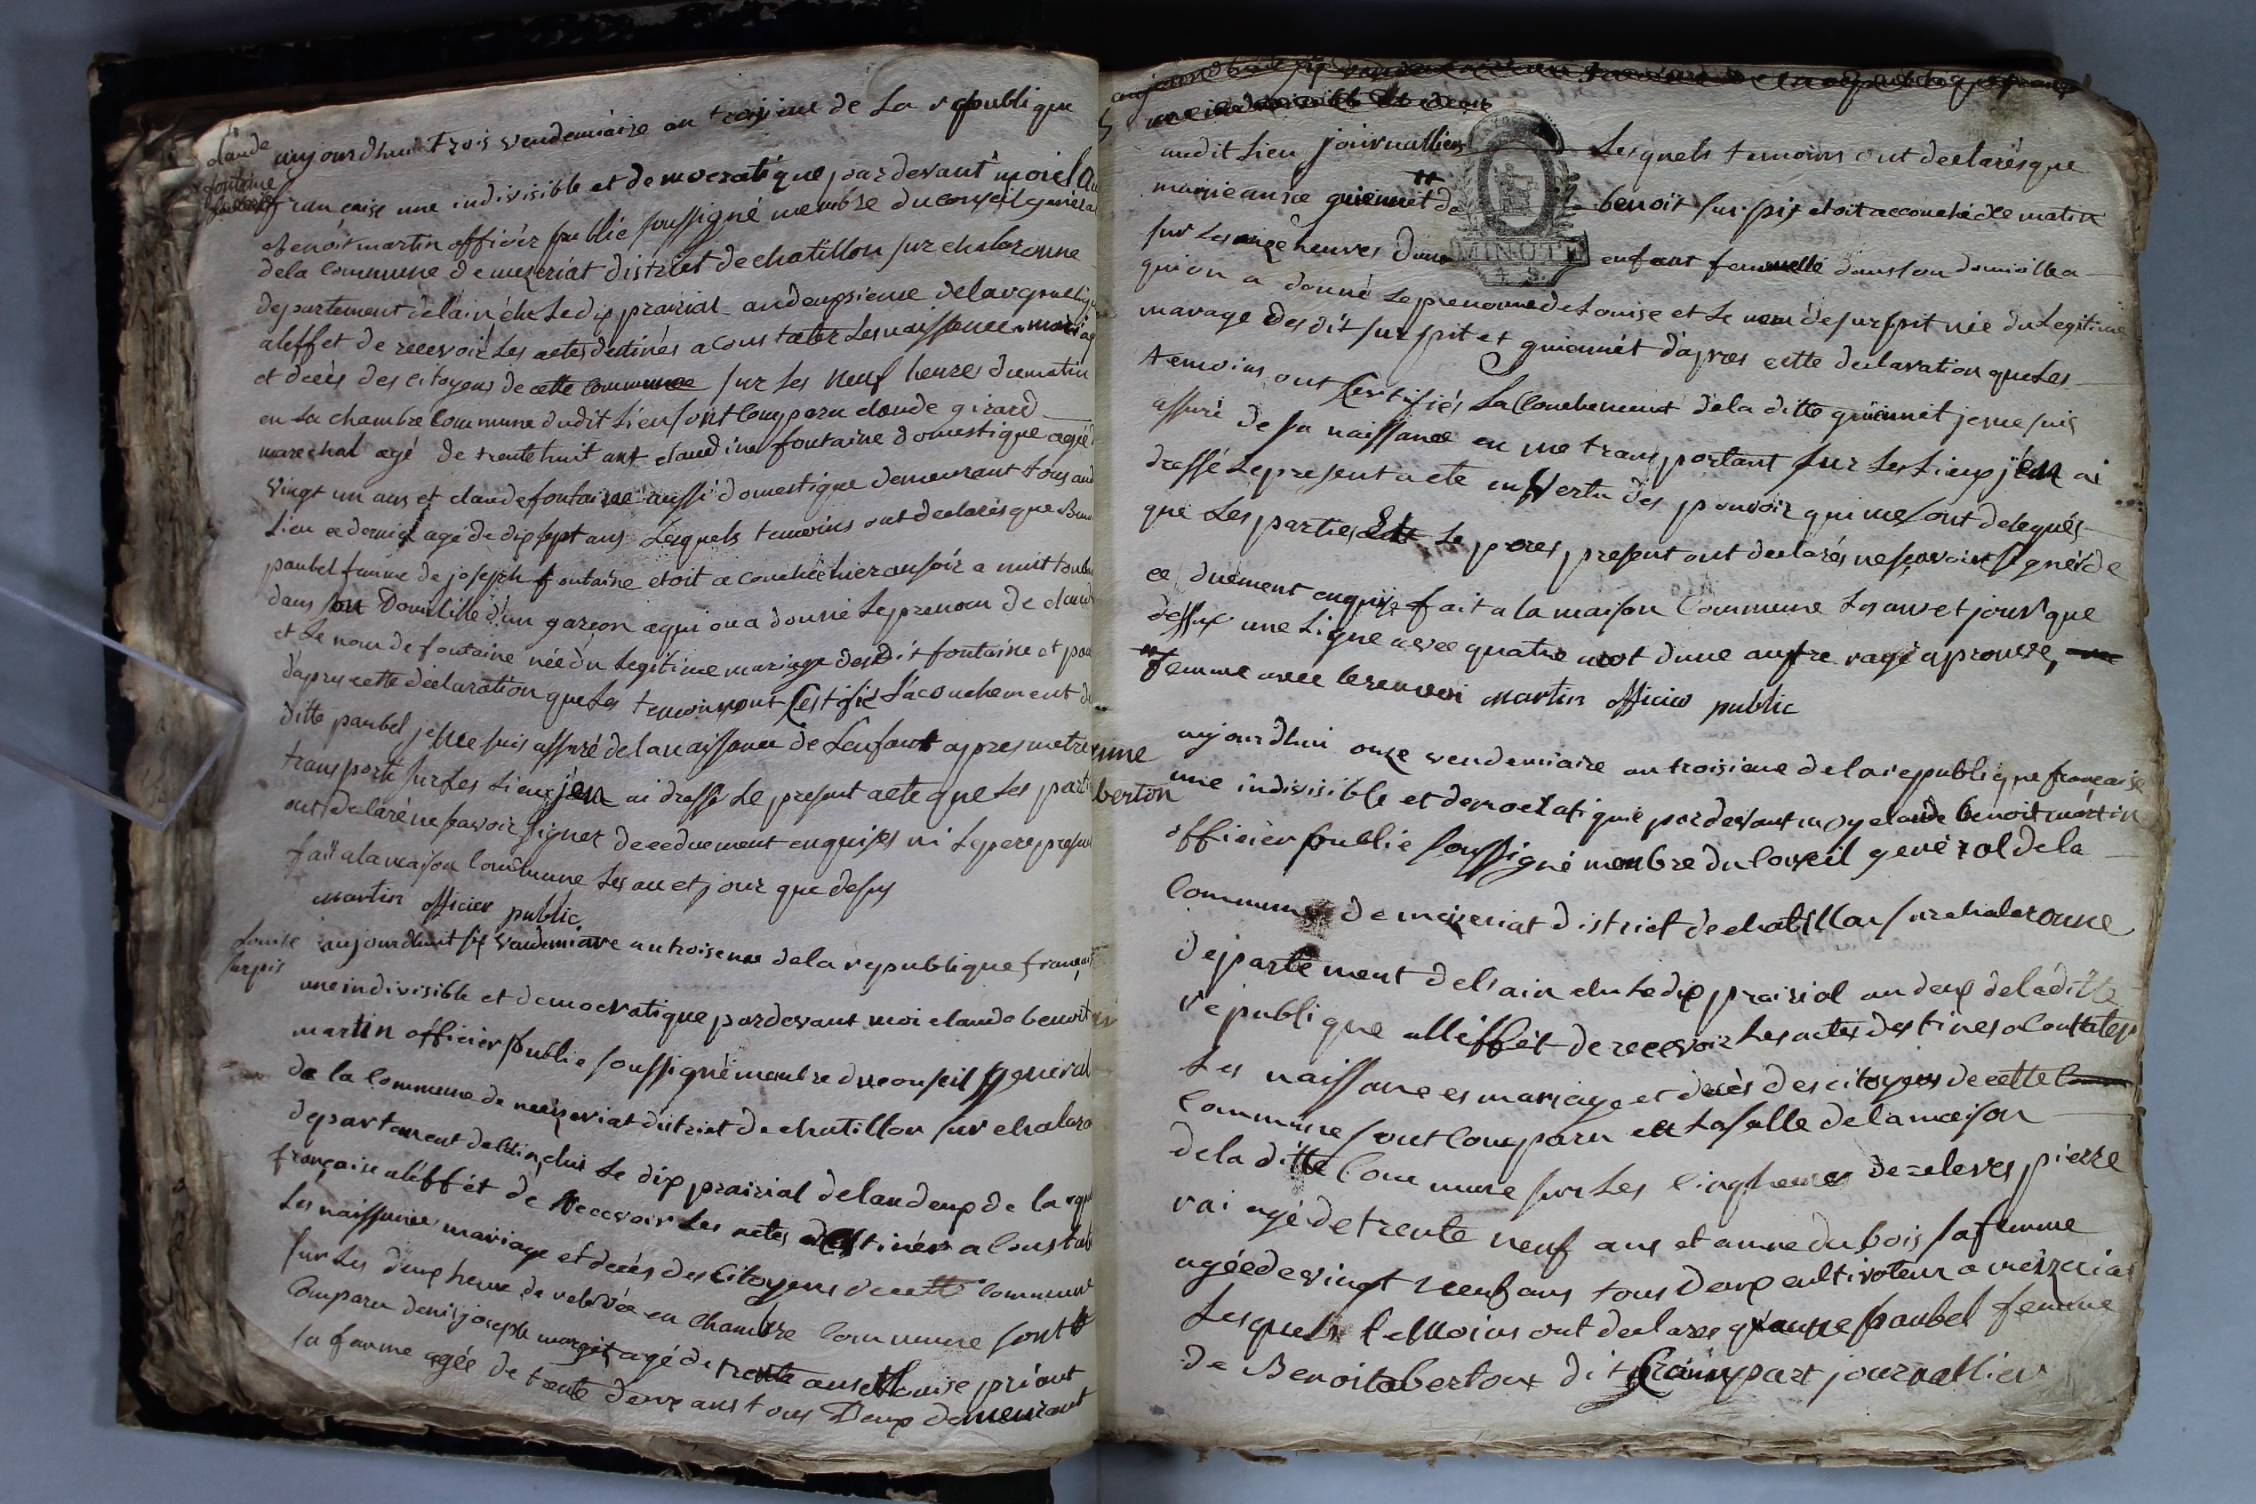 claude
fontaine
aujourdhui trois vendemiaire an troisieme de La republique
francaise une indivisible et democratique pardevant moi cl
Benoit martin officier public soussigné membre du conseil général
dela commune de mezeriat district de chatillon sur chalaronne
departement delain élu Le dix prairial an deuxsieme dela republi
aleffet de recevoir Les actes destinés a constater Les naissance mariag
et décès des citoyens de cette commune sur Les neuf heures du matin
en La chambre commune dudit Lieu sont comparu claude girard
marechal agé de trente huit ans claudine fontaine domestique agée
vingt un ans et claude fontaine aussi domestique demeurant tous aud
Lieu ce dernier agé de dix sept ans Lesquels temoins ont declarés que
paubel femme de joseph fontaine etoit acouchée hier au soir a nuit
dans son Domicille d'un garcon aqui on a donné Le prenom de claud
et Le nom de fontaine née du Legitime mariage desdit fontaine et pau
dapres cette déclaration que Les temoins ont Certifié L'acouchement de
ditte paubel je me suis assuré de la naissance de Lenfant apres metre
transporté sur Les Lieux jen ai dressé Le present acte que Les parti
ont declaré ne scavoir signer de ce duement enquises ni Le pere presen
fait a la maison commune Les an et jour que desus
martin officier public
Louise
surpis
aujourdhuit six Vendemiaire an troisieme dela republique francais
une indivisible et democratique pardevant moi claude benoit
martin officier public soussigné membre du conseil general
de la commune de mezeriat district de chatillon sur chalaro
departement delain, élu Le dix prairial delan deux de la repu
française aléffét de Recevoir Les actes destinés a constat
Les naissances mariage et décès des Citoyens de cette commune
sur Les deux heure de relevée en chambre commune sont
comparu denis joseph morgét agé de trente ans et Louise priant
sa femme agée de trente deux ans tous Deux demeurant
audit Lieu journalliers Lesquels temoins ont declarés que
marie anne guiennét de benoit surpis etoit accouchée ce matin
sur Les onze heures dune enfant femmelle dans son domicille a
qui on a donné Le prenomme de Louise et Le nom de surpit née du Legitime
mariage desdit surpit et guiennét d'apres cette declaration que Les
temoins ont Certifiés La Couchement de la ditte guiennét je me suis
assuré de sa naissance en me transportant sur Les Lieux jen ai
dressé Le present acte en Vertu des pouvoir qui me sont delegués
que Les parties Et Le pere, present ont declarés ne scavoir signér de
ce duement enquis fait a la maison Commune Les an et jour que
dessux une Ligne avec quatre mot dune autre rayé aprouvé,
femme avec le renvoi martin officier public
nne
berton
aujourdhui onze vendemiaire an troisieme de la republique francaise
une indivisible et democratique pardevant moy claude benoit martin
officier public soussigné membre du Conseil general de la
Commune de mezeriat district de chatillon sur chalaronne
departement delsain elu Le dix prairial an deux de la ditte
republique alléffét de recevoir Les actes destines a Constater
Les naissances mariage et decès des citoyens de cette
Commune sont Comparu en La salle de la maison
de la ditte Commune sur Les Cinq heures de relevés pierre
rai agé de trente neuf ans et anne dubois sa femme
agée de vingt neuf ans tous Deux cultivateur a mezeriat
Lesquels temoins ont declares qu'anne paubel femme
de Benoit aberton dit part journallier
MINUTE